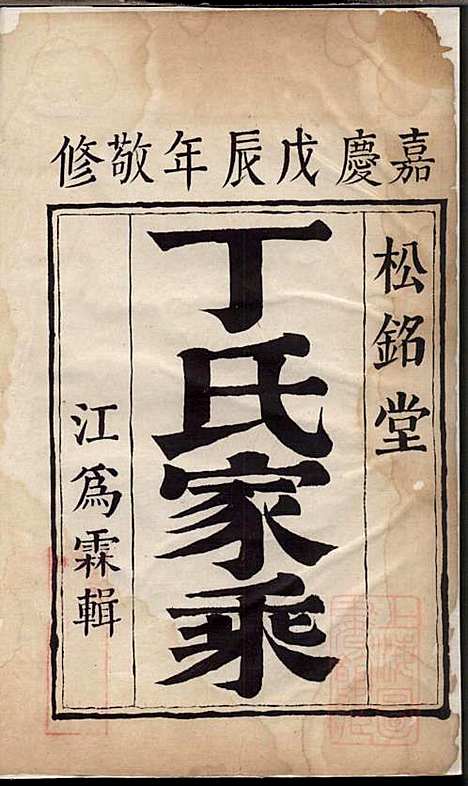 嘉慶戊辰年敬修
松銘堂
丁氏家乘
江爲霖輯